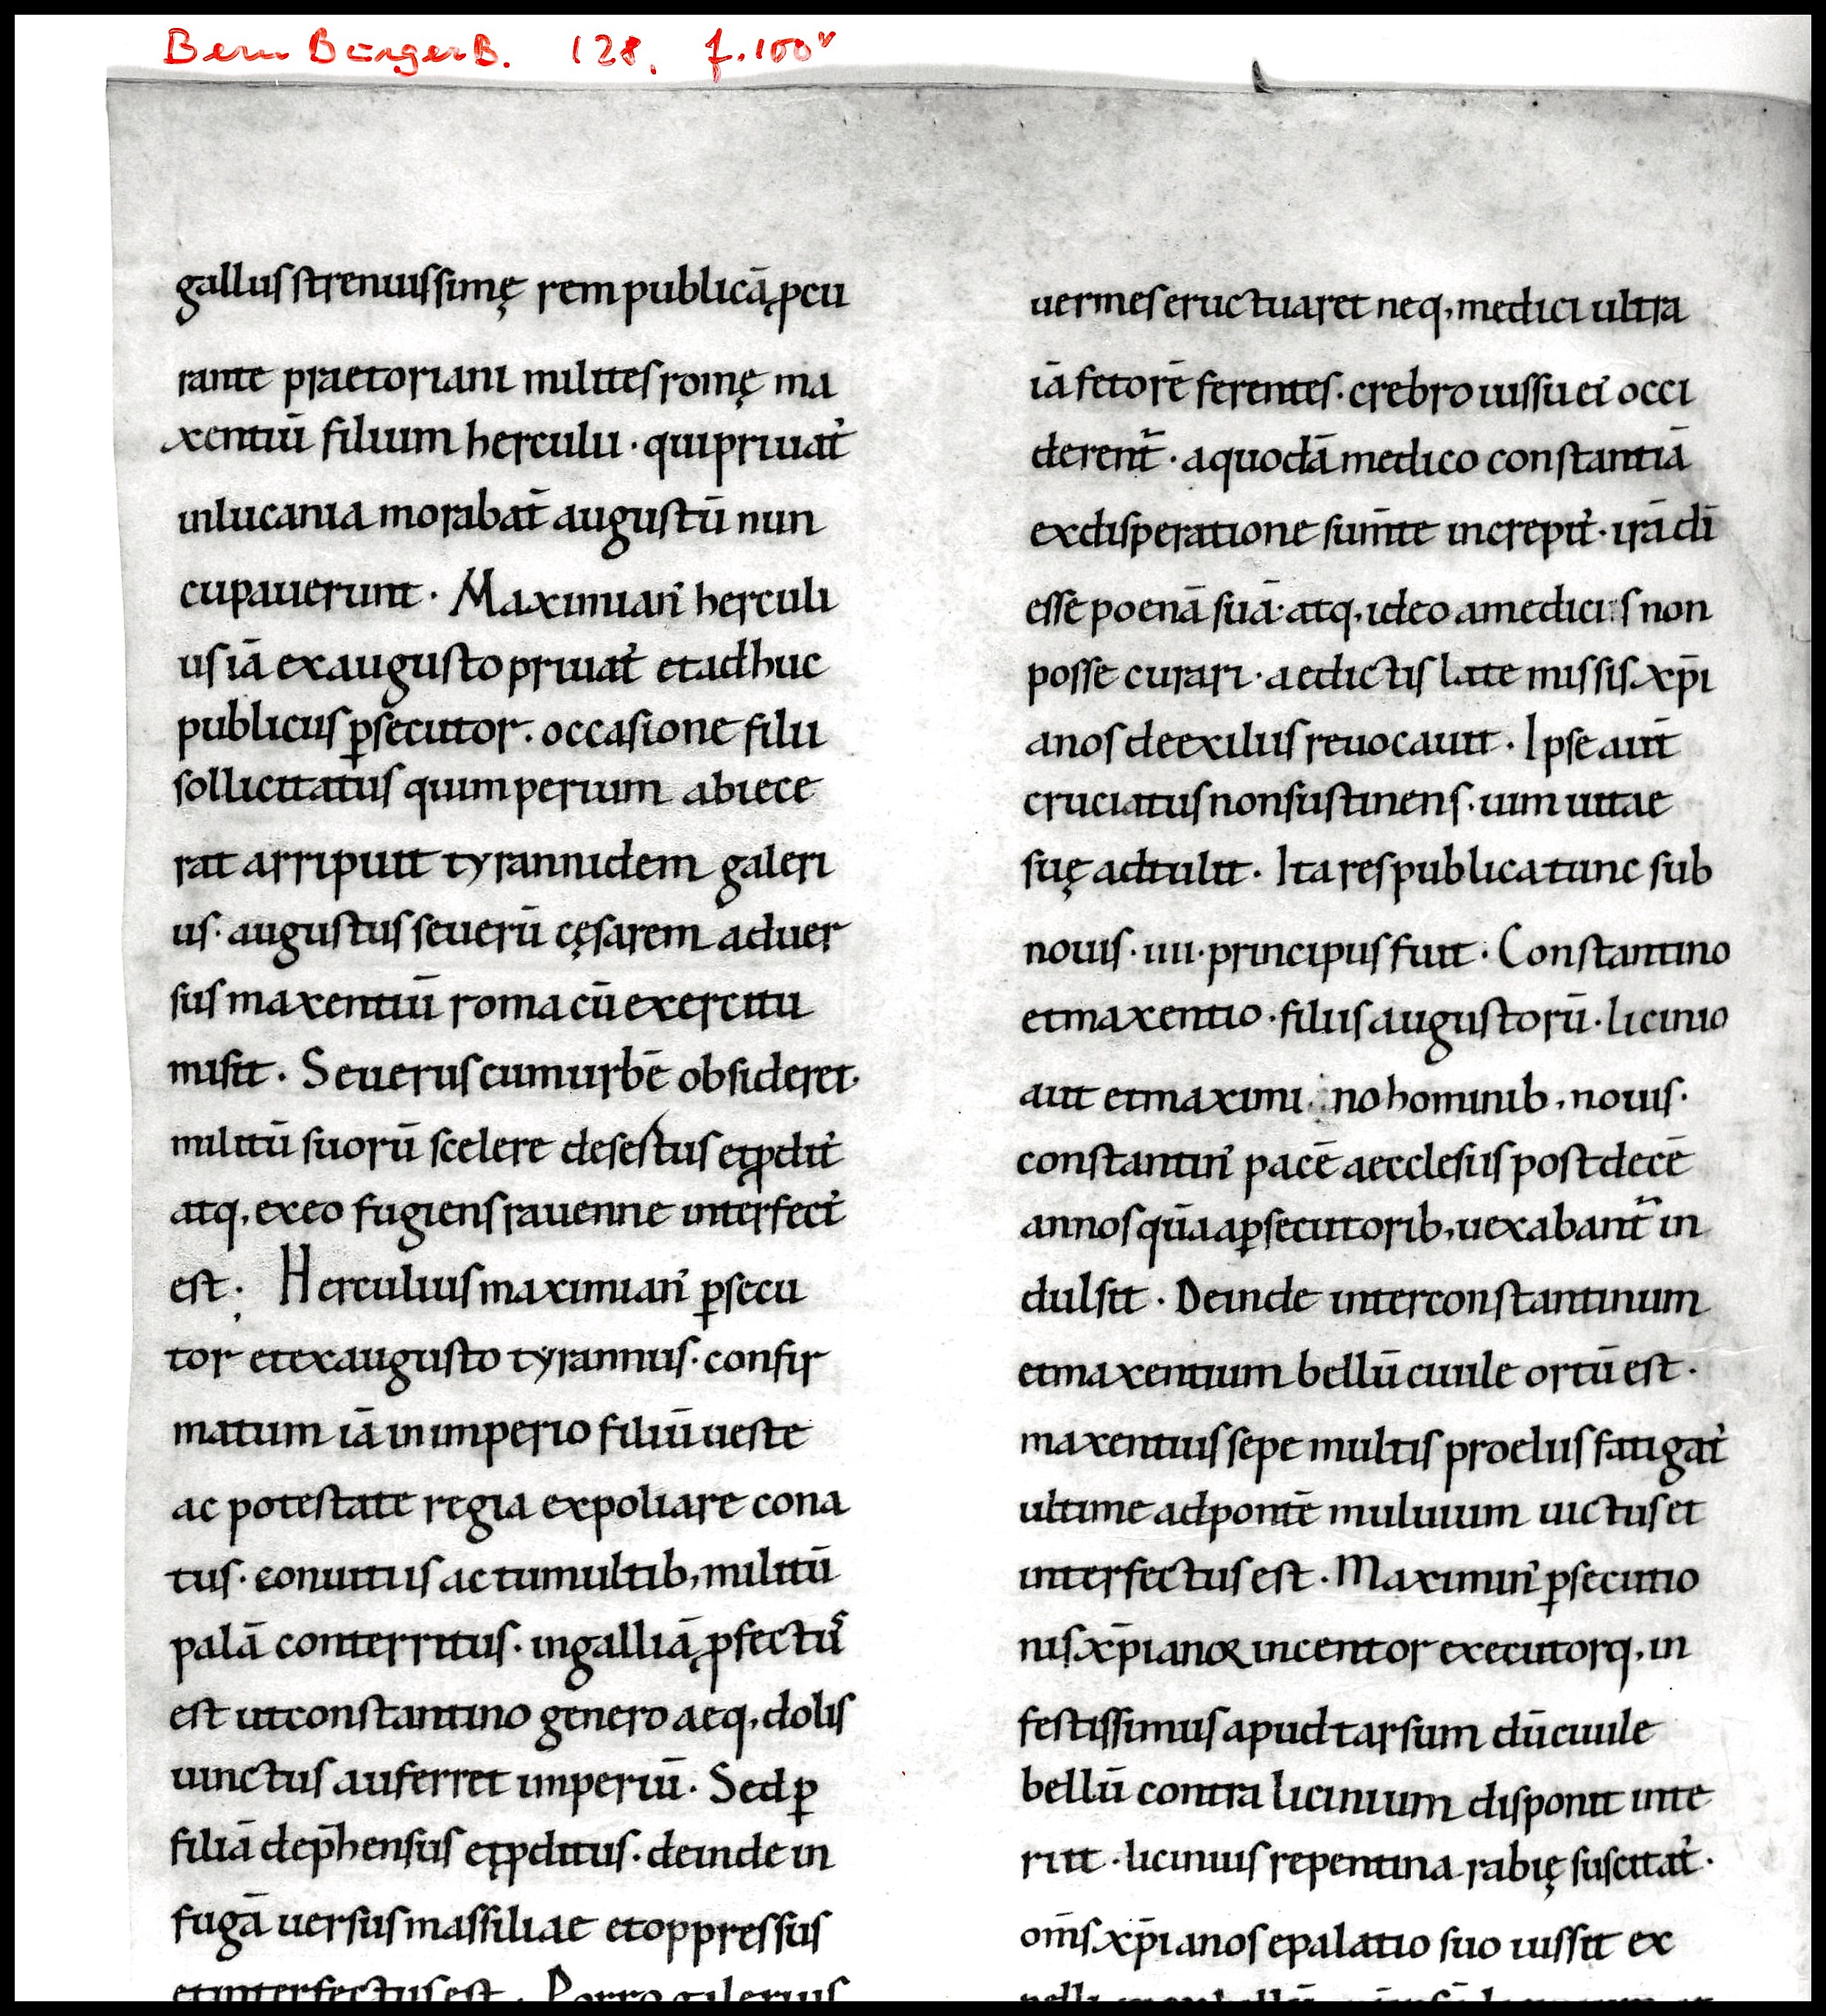 Bern BürgerB. 128. f. 100v
gallus strenuissimę rempublicā ꝓcu
rante praetoriani milites romę ma
xentiū filium herculii · qui priuat᾿
in lucania morabat̄ augustū nun
cupauerunt · Maximian᾿ herculi
us iā ex augusto priuat᾿ et adhuc
publicus ꝑsecutor · occasione filii
sollicitatus qui imperium abiece
rat arripuit tyrannidem galeri
us · augustus seuerū cęsarem aduer
sus maxentiū roma cū exercitu
misit · Seuerus cum urbē obsideret·
militū suorū scelere desertus et ꝓdit᾿
atq, ex eo fugiens rauenne interfect᾿
est · Herculius maximian᾿ ꝑsecu
tor et ex augusto tyrannus · confir
matum iā in imperio filiū ueste
ac potestate regia expoliare cona
tus · conuitiis ac tumultib, militū
palā conterritus · in galliā ꝓfectu᷒
est ut constantino genero aeq, dolis
uinctus auferret imperiū · Sed ꝑ
filiā dep̄hensus et ꝓditus · deinde in
fugā uersus massiliae et oppressus
et interfectus est · Porro galerius
uermes eructuaret neq, medici ultra
iā fetorē ferentes · crebro iussu ei᾿ occi
derent̄ · a quodā medico constantiā
ex disperatione sum̄te increpit᾿ · irā dī
esse poenā suā · atq, ideo a medicis non
posse curari · aedictis late missis xp̄i
anos de exiliis reuocauit · Ipse aut̄
cruciatus non sustinens · uim uitae
suę adtulit · Ita respublica tunc sub
nouis · iiii · principiis fuit · Constantino
et maxentio · filiis augustorū · licinio
aut et maximi no hominib, nouis ·
constantin᾿ pacē aecclesiis post decē
annos qūa a ꝑsecutorib, uexabant̄ in
dulsit · Deinde inter constantinum
et maxentium bellū ciuile ortū est ·
maxentius sepe multis proeliis fatigat᾿
ultime ad pontē muluium uictus et
interfectus est · Maximin᾿ ꝑsecutio
nis xp̄ianoꝝ incentor executorq, in
festissimus apud tarsum dū ciuile
bellū contra licinium disponit inte
riit · licinius repentina rabię suscitat᾿ ·
om̄s xp̄ianos e palatio suo iussit ex